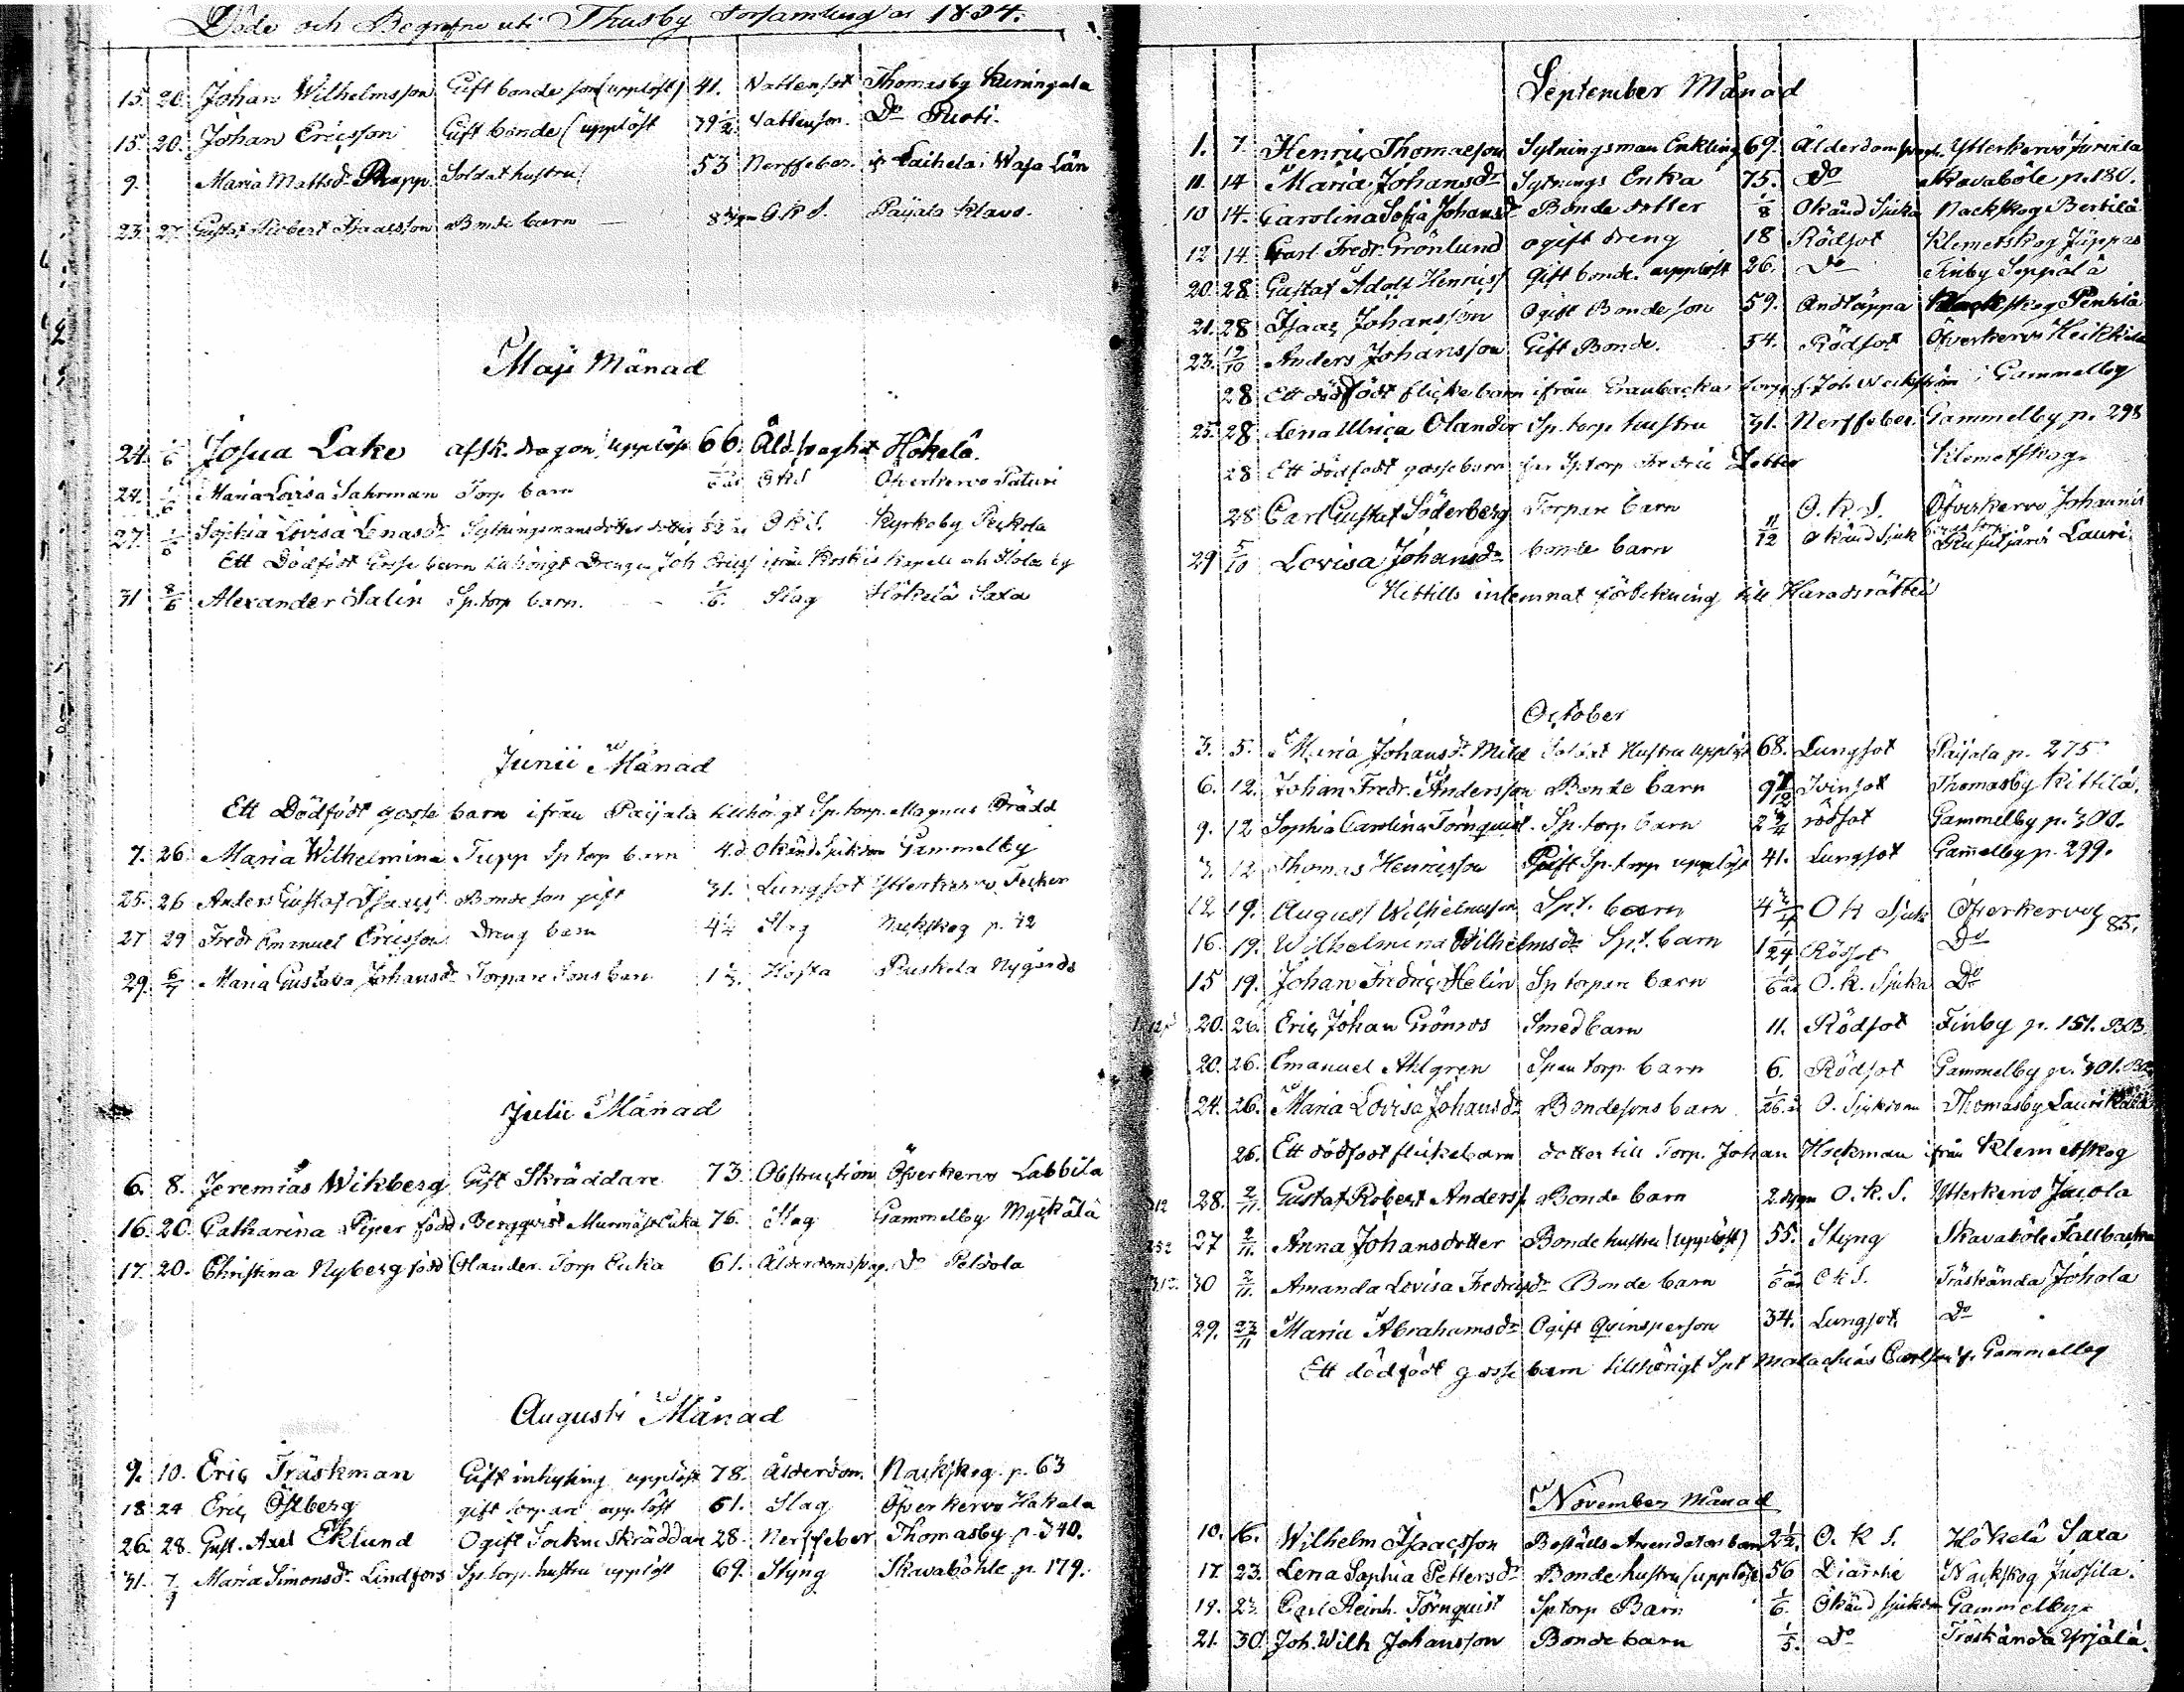 Döde och Begrafne uti Thusby Församling år 1834.
15. 20. Johan Wilhelmsson Gift bonde son (upplöst) 41. Vattensot Thomasby Kuningala
15. 20. Johan Ericsson Gift bonde (upplöst 39 1/2 Vattensot. Do Puoti.
9. Maria Mattsdr Rapp Soldat hustru 53 Nerffeber. ifr Laihela i Wasa Län
23. 27. Gustaf Robert Isaacsson Bonde barn O.K.S. Paijala Klavs.
Maji Månad
24. 1/6 Josua Lake afsk. dragon, upplöst 66. Åld.svaghet Hökelä.
24. 1/6 Maria Lovisa Sahrman Torp. barn 1/6 år O.K.S Öfverkervo Paturi
27. 1/6 Sophia Lovisa Lenasdr Sytningsmans dotter dotter O.K.S. Kyrkoby Peckola
Ett Dödfödt Gosse barn tillhörigt Drengen Joh Ericss ifrån Koskis kapell och Hola by
31 8/6 Alexander Salin Sp.torp barn. 1/6. Slag Hökelä Saxa
Junii Månad
Ett Dödfödt gosse barn ifrån Paijala tillhörigt Sp.torp. Magnus Brädd
7. 26. Maria Wilhelmina Tupp Sp torp barn 4.d. okänd Sjukdom Gammelby
25. 26 Anders Gustaf Isaacss Bonde son gift 31. Lungsot Ytterkervo Fecker
27 29 Fredr Emanuel Ericsson Dreng barn 4 1/4 Slag Nackskog p. 42
29. 6/7 Maria Gustava Johansdr Torpare Sons barn 1 1/3. Hosta Ruskela Nygårds
Julii Månad
6. 8. Jeremias Wikberg Gift Skräddare 73. Obstruction Öfverkervo Labbila
16. 20. Catharina Piper född Bergqvist Murmäst Enka 76. Slag Gammelby Myckälä
17. 20. Christina Nyberg född Olander. Torp Enka 61. Ålderdomsvag. Do Peldola
Augusti Månad
9. 10. Eric Träskman Gift inhysing upplöst 78. Ålderdom. Nackskog. p. 63
18 24 Eric Östberg gift torpare upplöst 61. Slag Öfverkervo Hakala
26. 28. Gust. Axel Eklund Ogift Sockne Skräddare 28. Nerffeber Thomasby p. 340.
31. 7/9 Maria Simonsdr Lindfors Sp.torp. hustru upplöst 69. Styng Skavaböhle p. 179.
September Månad
1. 7 Henric Thomasson Sytningsman Enkling 69. Ålderdomsvagh. Ytterkervo Juvila
11. 14 Maria Johansdr Sytnings Enka 75. Do Skavaböle p. 180.
10 14. Carolina Sofia Johansdr Bonde dotter 1/8 Okänd Sjuka Nackskog Bertilä
12 14. Carl Fredr. Grönlund ogift dreng 18 Rödsot Klemetskog Jäppas
20. 28 Gustaf Adolf Henricss Gift bonde. upplöst 26. Do Finby Seppälä
21. 28 Isaac Johansson Ogift Bonde son 59. Andtäppa Nackskog Penttilä
23. 12/10 Anders Johansson Gift Bonde. 54. Rödsot Öfverkervo Heikkilä
28 Ett dödfödt flickebarn ifrån Granbacka torp f. Joh. Weckström i Gammelby
25. 28 Lena Ulrica Olander Sp. torp hustru 31. Nerffeber. Gammelby p. 298
28 Ett dödfödt gossebarn för Sp torp Fredric Zetter Klemetskog.
28 Carl Gustaf Söderberg Torpare barn O. K. S. Öfverkervo Johannis
29 5/10 Lovisa Johansdr bonde barn 11/12 Okänd Sjuk Rusutjärvi Lauri.
Hittills inlemnat förtekning till Häradsrätten
October
3. 5. Maria Johansdr Mild Soldat Hustru upplöst 68. Lungsot Paijala p. 275
6. 12. Johan Fredr. Andersson Bonde barn 9 7/12 Tvinsot Thomasby Kittilä.
9. 12 Sophia Carolina Törnquist. Sp.torp barn 2 3/4 rödsot Gammelby p. 300.
7. 12 Thomas Henricsson Gift Sp.torp upplöst 41. Lungsot Gammelby p. 299.
12. 19. August Wilhelmsson Spt. barn 4 3/4 O K Sjuk Öfverkervo p. 85.
16. 19. Wilhelmina Wilhelmsdr Spt. barn 1 1/24 Rödsot Do
15 19. Johan Fredric Helin Sp torpare barn 1/6 år O. K. Sjuka Do
20. 26. Eric Johan Grönros Smed barn 11. Rödsot Finby p. 151. BB
20. 26. Emanuel Ahlgren Span torp. barn 6. Rödsot Gammelby p. 301.
24. 26. Maria Lovisa Johansdr Bondesons barn 1/26. år O. Sjukdom Thomasby Laurikala
26. Ett dödfödt flickebarn dotter till Torp. Johan Hockman ifrån Klemetskog
28. 2/11 Gustaf Robert Anderss. Bonde barn 2. dygn O. K. S. Ytterkervo Jacola
27 2/11. Anna Johansdotter Bonde hustru (upplöst) 55. Styng Skavaböle Fallbacka
30 2/11. Amanda Lovisa Fredricsdr Bonde barn 1/6 år O K S. Träskända Johola
29. 23/11 Maria Abrahamsdr Ogift Qvinsperson 34. Lungsot Do
Ett dödfödt gosse barn tillhörigt Spt Malachias Carlsson fr. Gammelby
November Månad
10. 16. Wilhelm Isaacsson Boställs Arendators barn 2 1/2. O. K S. Hökelä Saxa
17. 23. Lena Sophia Pettersdr Bonde hustru (upplöst 56 Diarrhé Nackskog Jussila.
19. 23. Carl Reinh. Törnquist Sp.torp Barn 1/6. Okänd sjukdom Gammelby
21. 30. Joh. Wilh Johansson Bonde barn 1/5. Do Träskända Yrjälä.